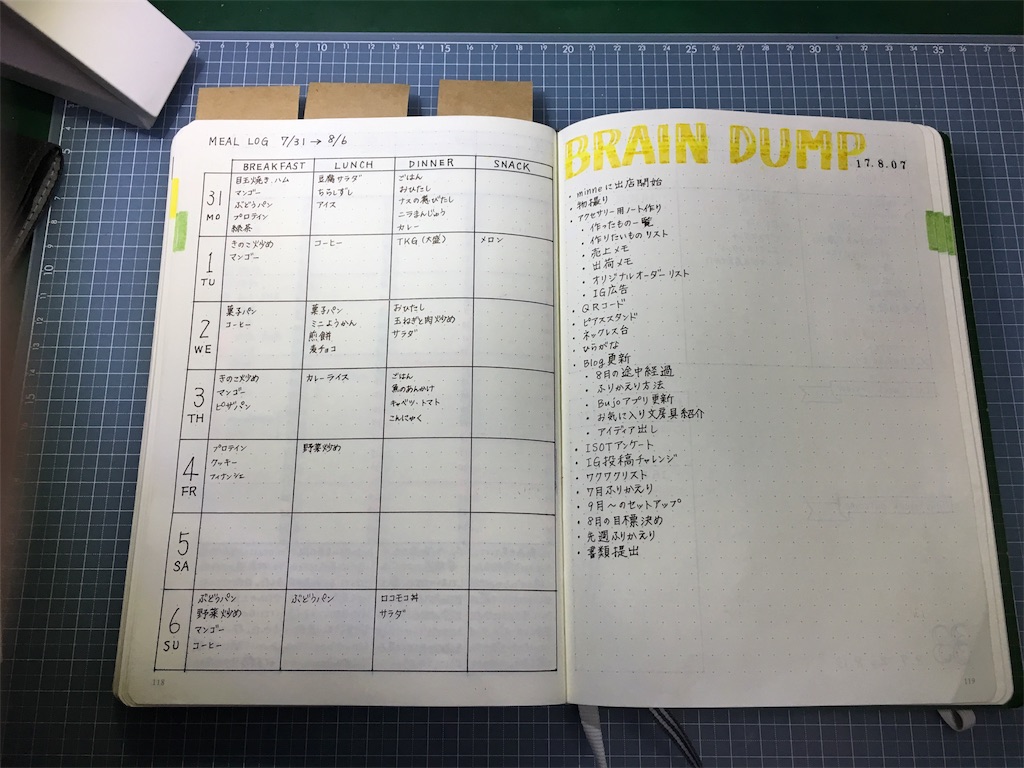 MEAL LOG 7/31 → 8/6
BREAKFAST LUNCH DINNER SNACK
31 MO
目玉焼き、ハム
マンゴー
ぶどうパン
プロテイン
緑茶
豆腐サラダ
ちらしずし
アイス
ごはん
おひたし
ナスの煮びたし
ニラまんじゅう
カレー
1 TU
きのこ炒め
マンゴー
コーヒー
TKG (大盛)
メロン
2 WE
菓子パン
コーヒー
菓子パン
ミニようかん
煎餅
麦チョコ
おひたし
玉ねぎと肉炒め
サラダ
3 TH
きのこ炒め
マンゴー
ピザパン
カレーライス
ごはん
魚のあんかけ
キャベツ・トマト
こんにゃく
4 FR
プロテイン
クッキー
フィナンシェ
野菜炒め
5 SA
6 SU
ぶどうパン
野菜炒め
マンゴー
コーヒー
ぶどうパン
ロコモコ丼
サラダ
118
BRAIN DUMP
17.8.07
・minneに出店開始
・物撮り
・アクセサリー用ノート作り
・作ったもの一覧
・作りたいものリスト
・売上メモ
・出荷メモ
・オリジナルオーダーリスト
・IG広告
・QRコード
・ピアススタンド
・ネックレス台
・ひらがな
・Blog更新
・8月の途中経過
・ふりかえり方法
・Bujoアプリ更新
・お気に入り文房具紹介
・アイディア出し
・ISOTアンケート
・IG投稿チャレンジ
・ワクワクリスト
・7月ふりかえり
・9月〜のセットアップ
・8月の目標決め
・先週ふりかえり
・書類提出